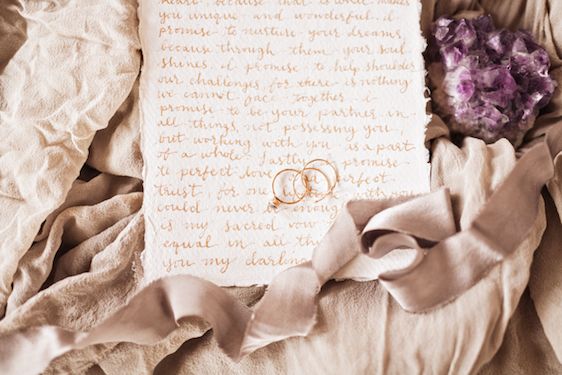 heart because that is what makes
you unique and wonderful. i
promise to nurture your dreams,
because through them your soul
shines. i promise to help shoulder
our challenges, for there is nothing
we cannot face together. i
promise to be your partner in
all things, not possessing you,
but working with you is a part
of a whole. Lastly, promise
to perfect love perfect
trust, for one with you
could never be enough
is my sacred vow
equal in all thi
you my darling